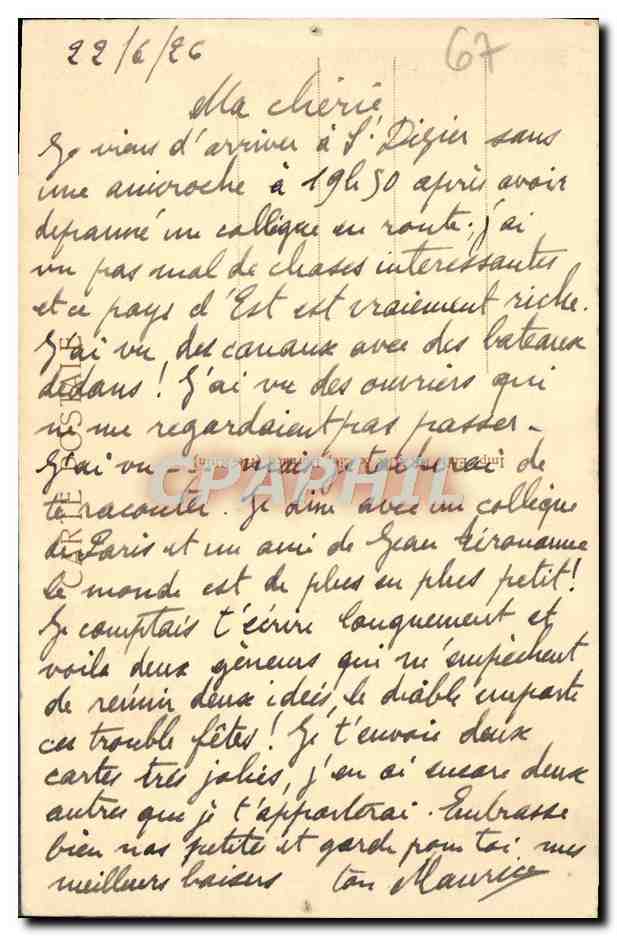 22/6/26
67
Ma chérie
Je viens d'arriver à St Dizier sans
une anicroche à 19h50 après avoir
depanné un collègue en route. j'ai
vu pas mal de choses interessantes
et ce pays d'Est est vraiement riche.
J'ai vu des canaux avec des bateaux
dedans ! J'ai vu des ouvriers qui
ne me regardaient pas passer -
J'ai vu - - - mais je tacherai de
te raconter. Je dine avec un collègue
de Paris et un ami de Jean
le monde est de plus en plus petit !
Je comptais t'écrire longuement et
voila deux gêneurs qui m'empèchent
de reúnir deux idées, le diable emporte
ces trouble fêtes ! Je t'envoie deux
cartes très jolies, j'en ai encore deux
autres que je t'apporterai. Embrasse
bien nos petits et garde pour toi mes
meilleurs baisers ton Maurice
CARTE POSTALE
CPAPHIL